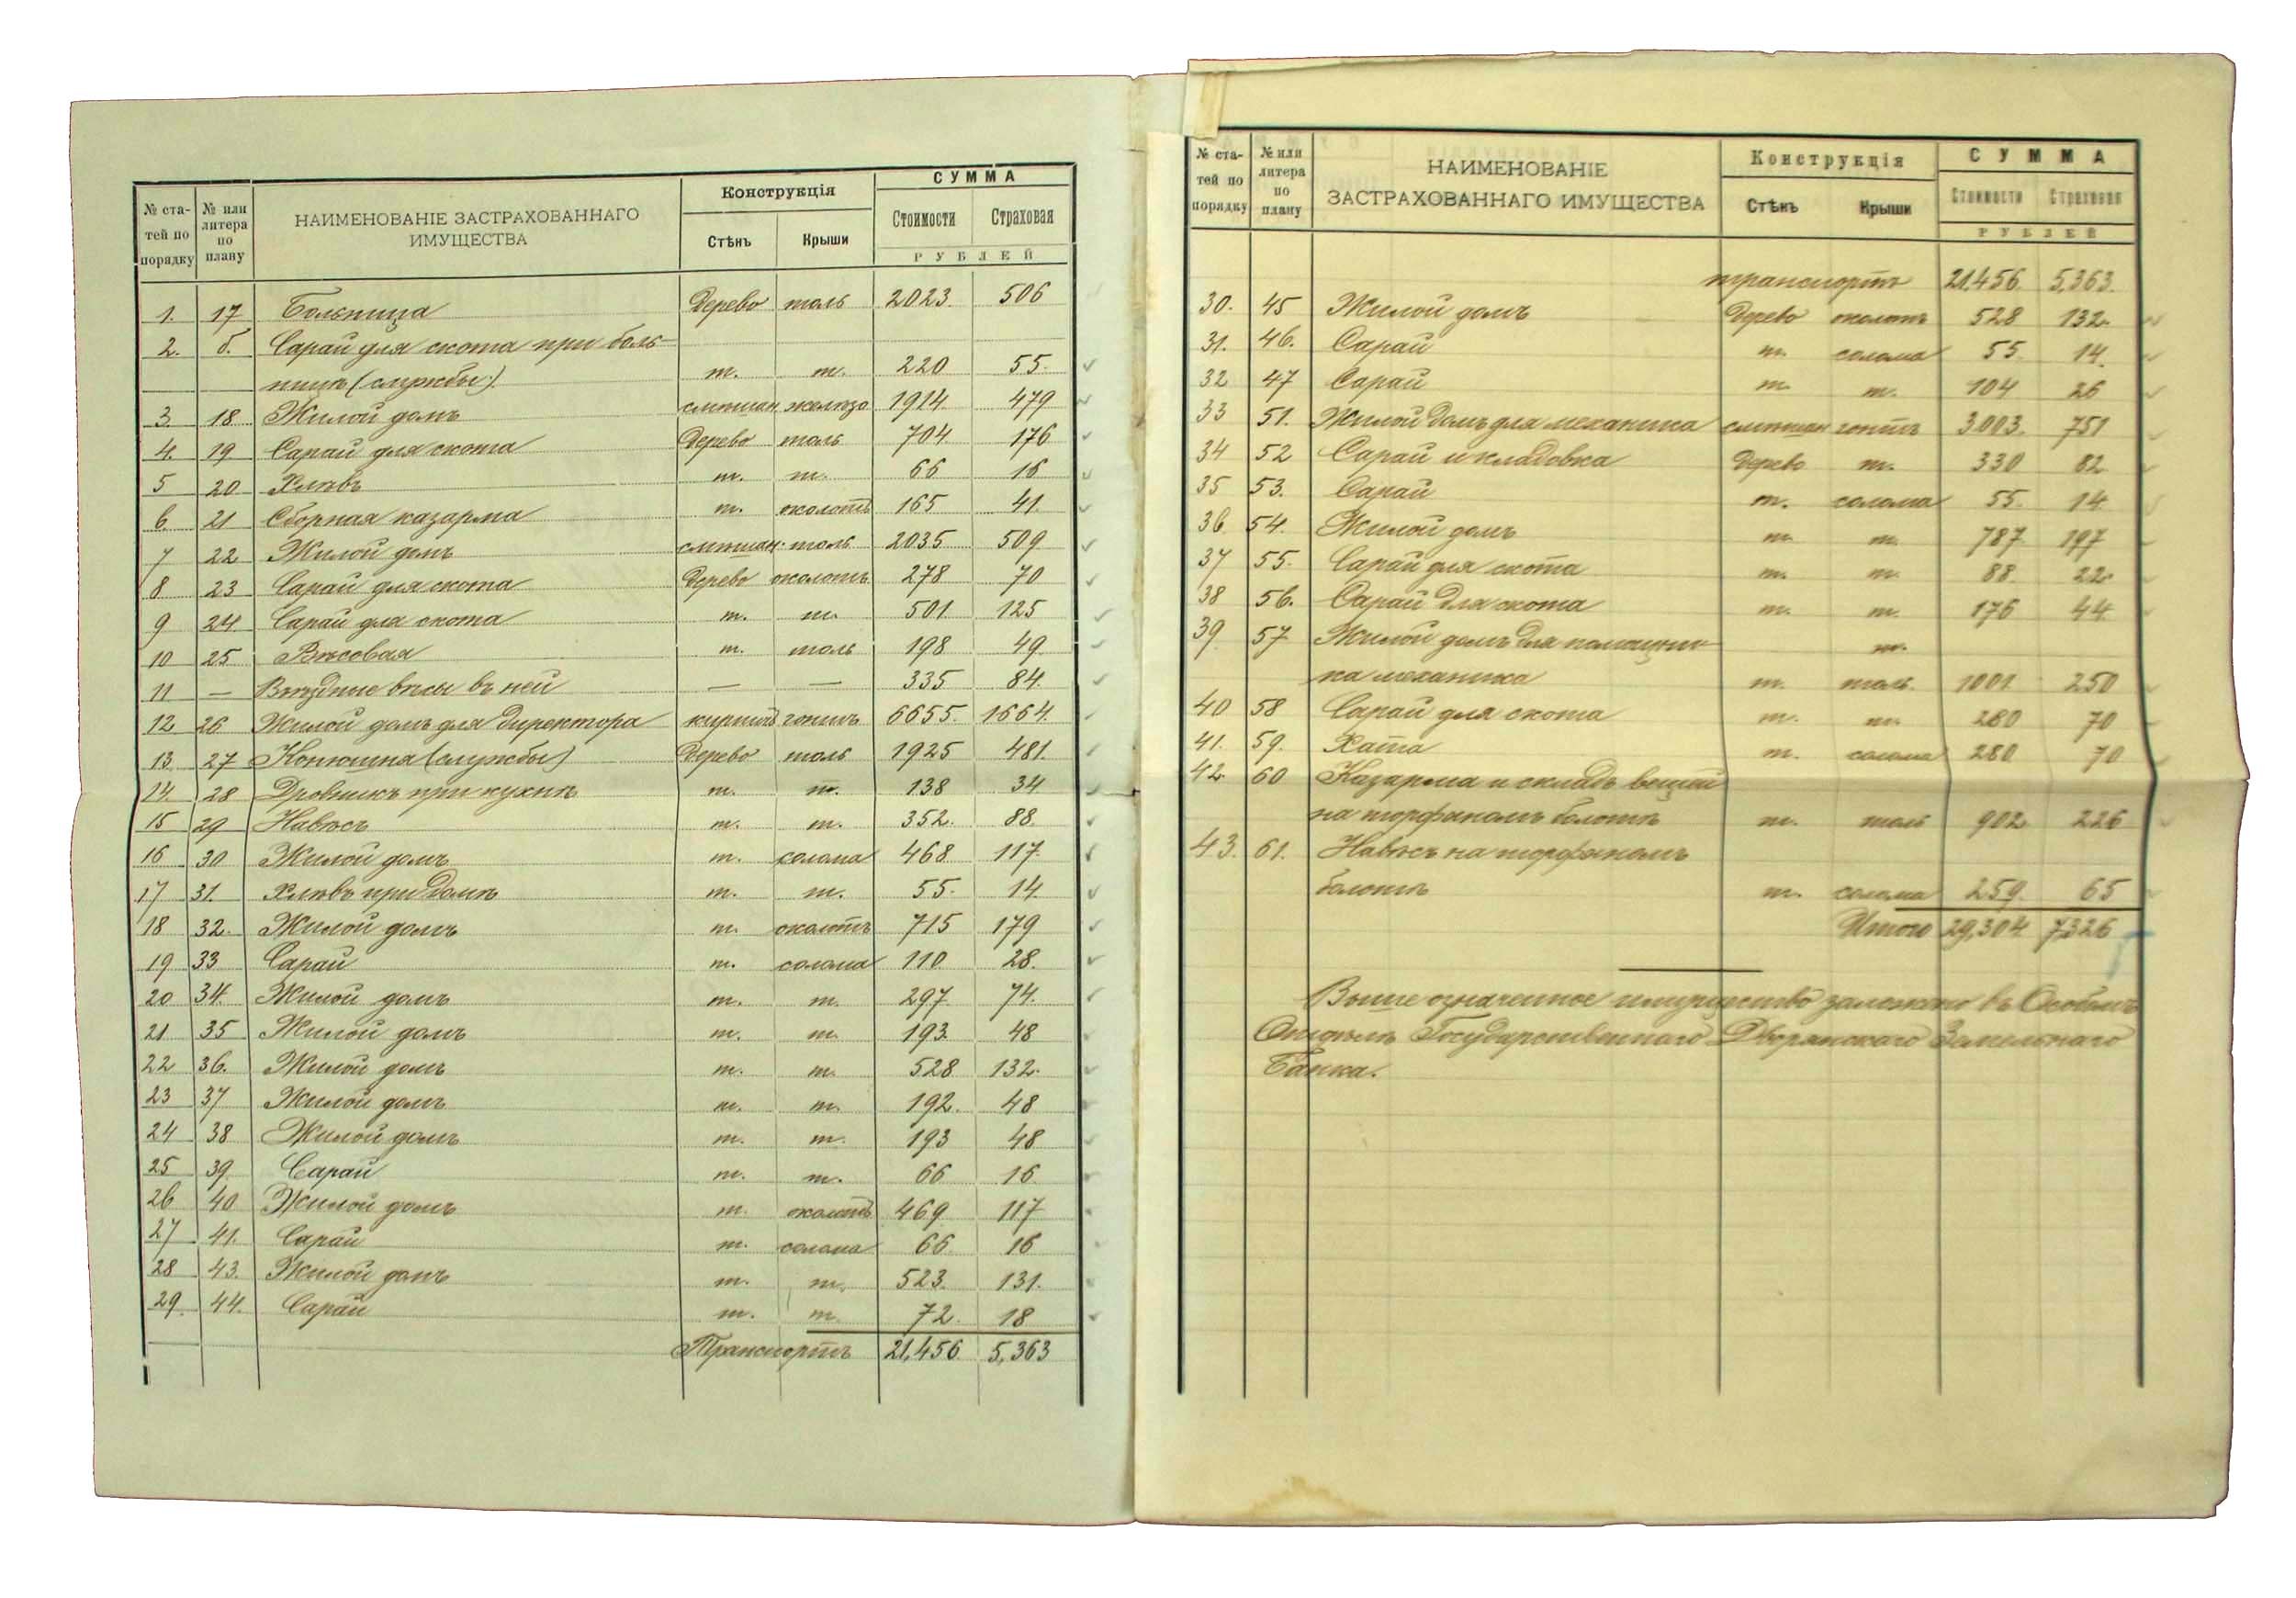 № ста-
тей по
порядку
№ или
литера
по
плану
НАИМЕНОВАНІЕ ЗАСТРАХОВАННАГО
ИМУЩЕСТВА
Конструкція
Стѣнъ Крыши
СУММА
Стоимости Страховая
РУБЛЕЙ
1. 17 Больница Дерево толь 2023 506
2. б. Сарай для скота при боль-
ницѣ (службы) т. т. 220 55
3. 18 Жилой домъ смѣшан желѣзо 1914 479
4. 19 Сарай для скота Дерево толь 704 176
5 20 Хлѣвъ т. т. 66 16
6. 21 Сборная казарма т. околотъ 165 41.
7 22 Жилой домъ смѣшан. толь 2035 509
8 23 Сарай для скота Дерево околотъ 278 70
9 24 Сарай для скота т. т. 501 125
10 25 Вѣсовая т. толь 198 49
11 — Въѣздные вѣсы въ ней — — 335 84.
12 26 Жилой домъ для Директора кирпичъ гонтъ 6655. 1664.
13 27 Конюшня (службы) Дерево толь 1925 481.
14. 28 Дровникъ при кухнѣ т. т. 138 34
15 29 Навѣсъ т. т. 352. 88.
16 30 Жилой домъ т. солома 468 117.
17 31. Хлѣвъ при Домѣ т. т. 55. 14.
18 32. Жилой домъ т. околотъ 715 179
19 33 Сарай т. солома 110 28.
20 34. Жилой домъ т. т. 297 74.
21 35 Жилой домъ т. т. 193 48
22 36. Жилой домъ т. т. 528 132.
23 37 Жилой домъ т. т. 192. 48
24 38 Жилой домъ т. т. 193 48
25 39. Сарай т. т. 66 16
26 40 Жилой домъ т. околотъ 469 117
27 41. Сарай т. солома 66 16
28 43. Жилой домъ т. т. 523. 131.
29. 44. Сарай т. т. 72. 18
Транспортъ 21,456 5,363
№ ста-
тей по
порядку
№ или
литера
по
плану
НАИМЕНОВАНІЕ
ЗАСТРАХОВАННАГО ИМУЩЕСТВА
Конструкція
Стѣнъ Крыши
СУММА
Стоимости Страховая
РУБЛЕЙ
транспортъ 21.456. 5,363.
30. 45 Жилой домъ Дерево околотъ 528 132.
31. 46. Сарай т. солома 55 14.
32 47 Сарай т. т. 104 26
33 51. Жилой Домъ для механика смѣшан гонтъ 3.003. 751
34 52 Сарай и кладовка Дерево т. 330 82
35 53. Сарай т. солома 55. 14
36 54. Жилой домъ т. т. 787 197
37 55. Сарай для скота т. т. 88 22.
38 56. Сарай Для скота т. т. 176 44.
39. 57 Жилой домъ Для помощни- т.
ка механика т. толь. 1001 250
40 58 Сарай для скота т. т. 280 70
41. 59. Хата т. солома 280 70
42. 60 Казарма и складъ вещей
на торфяномъ болотѣ т. толь 902 226
43. 61. Навѣсъ на торфяномъ
болотѣ т. солома 259. 65
Итого 29,304 7,326
Выше означенное имущество заложено въ Особомъ
Отдѣлѣ Государственнаго Дворянскаго Земельнаго
Банка.